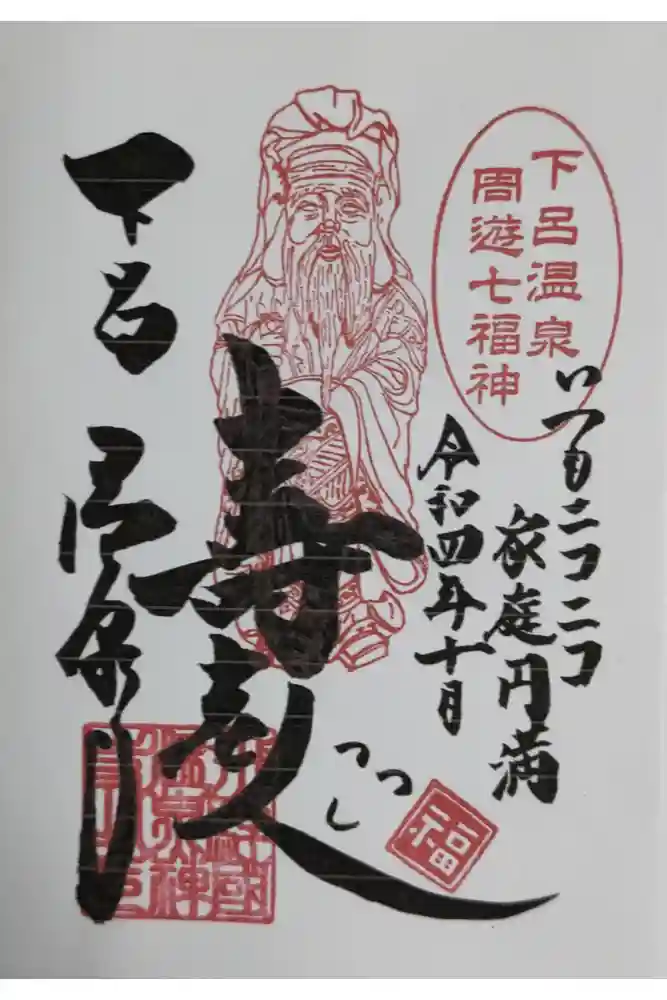 下呂温泉
周遊七福神
いつもニコニコ
家庭円満
令和四年十月
寿老人
下呂温泉
つつし
福